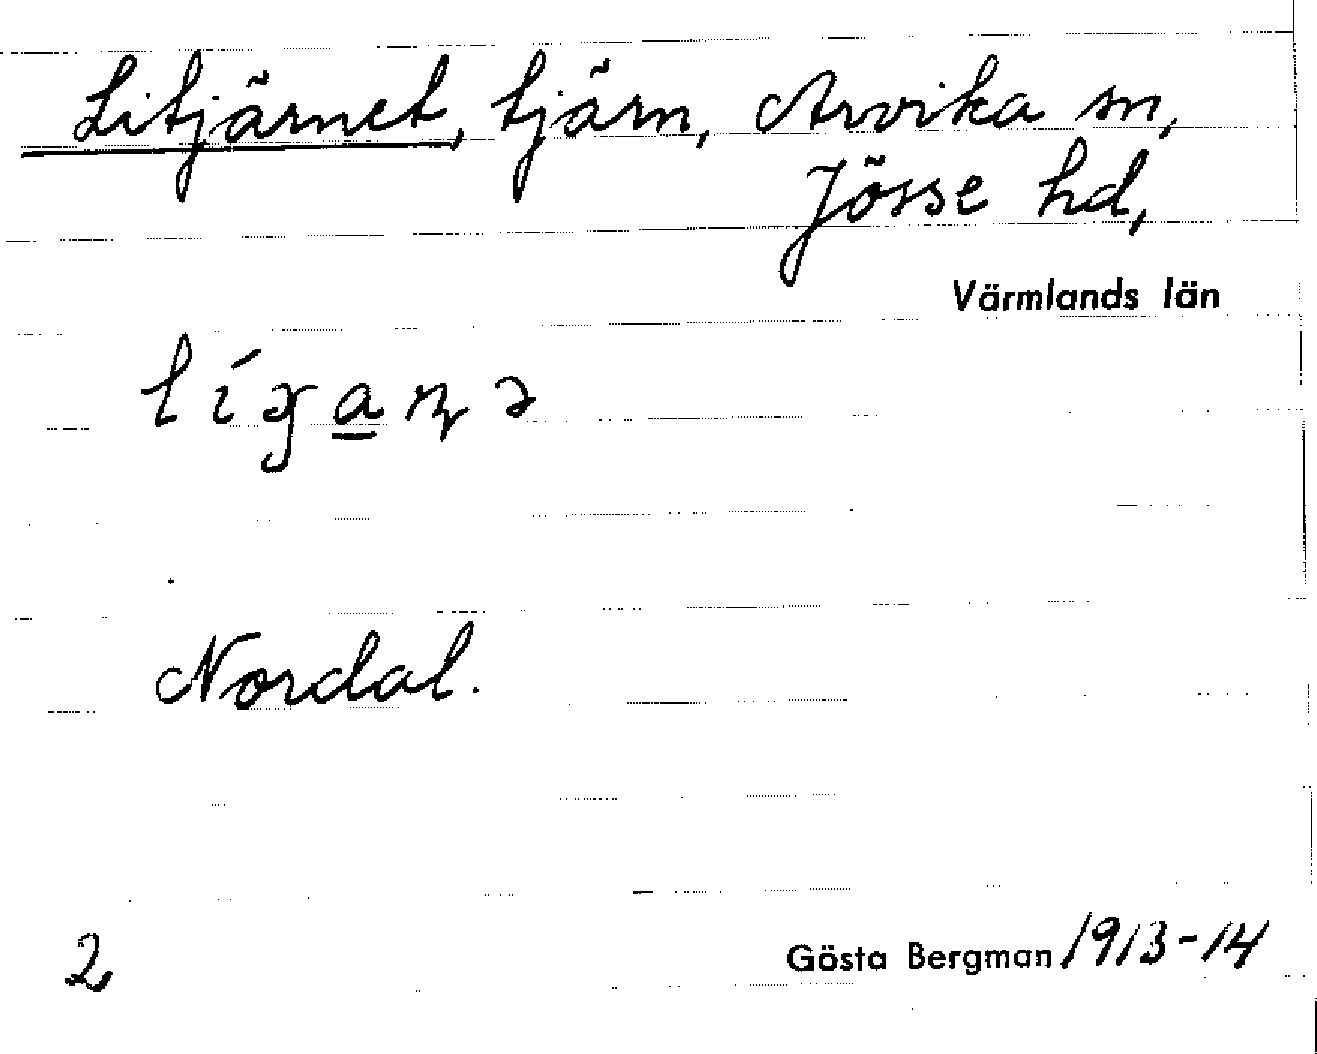 Litjärnet, tjärn, Arvika sn,
Jösse hd,
Värmlands län
Nordal.
2
Gösta Bergman 1913-14